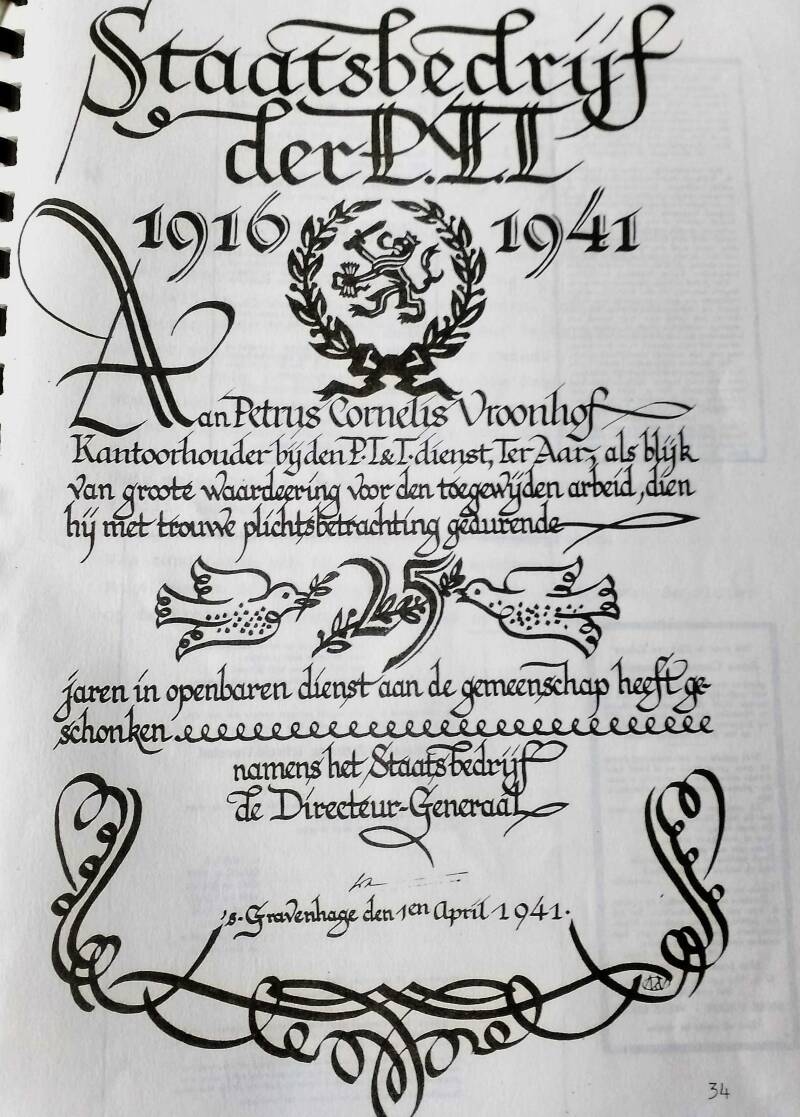 Staatsbedrijf
der P.T.T.
1916 1941
Aan Petrus Cornelis Vroonhof
Kantoorhouder bij den P.T.&T. dienst, Ter Aar, als blijk
van groote waardeering voor den toegewijden arbeid, dien
hij met trouwe plichtsbetrachting gedurende
25
jaren in openbaren dienst aan de gemeenschap heeft ge-
schonken
namens het Staatsbedrijf
de Directeur-Generaal
's-Gravenhage den 1en April 1941.
34